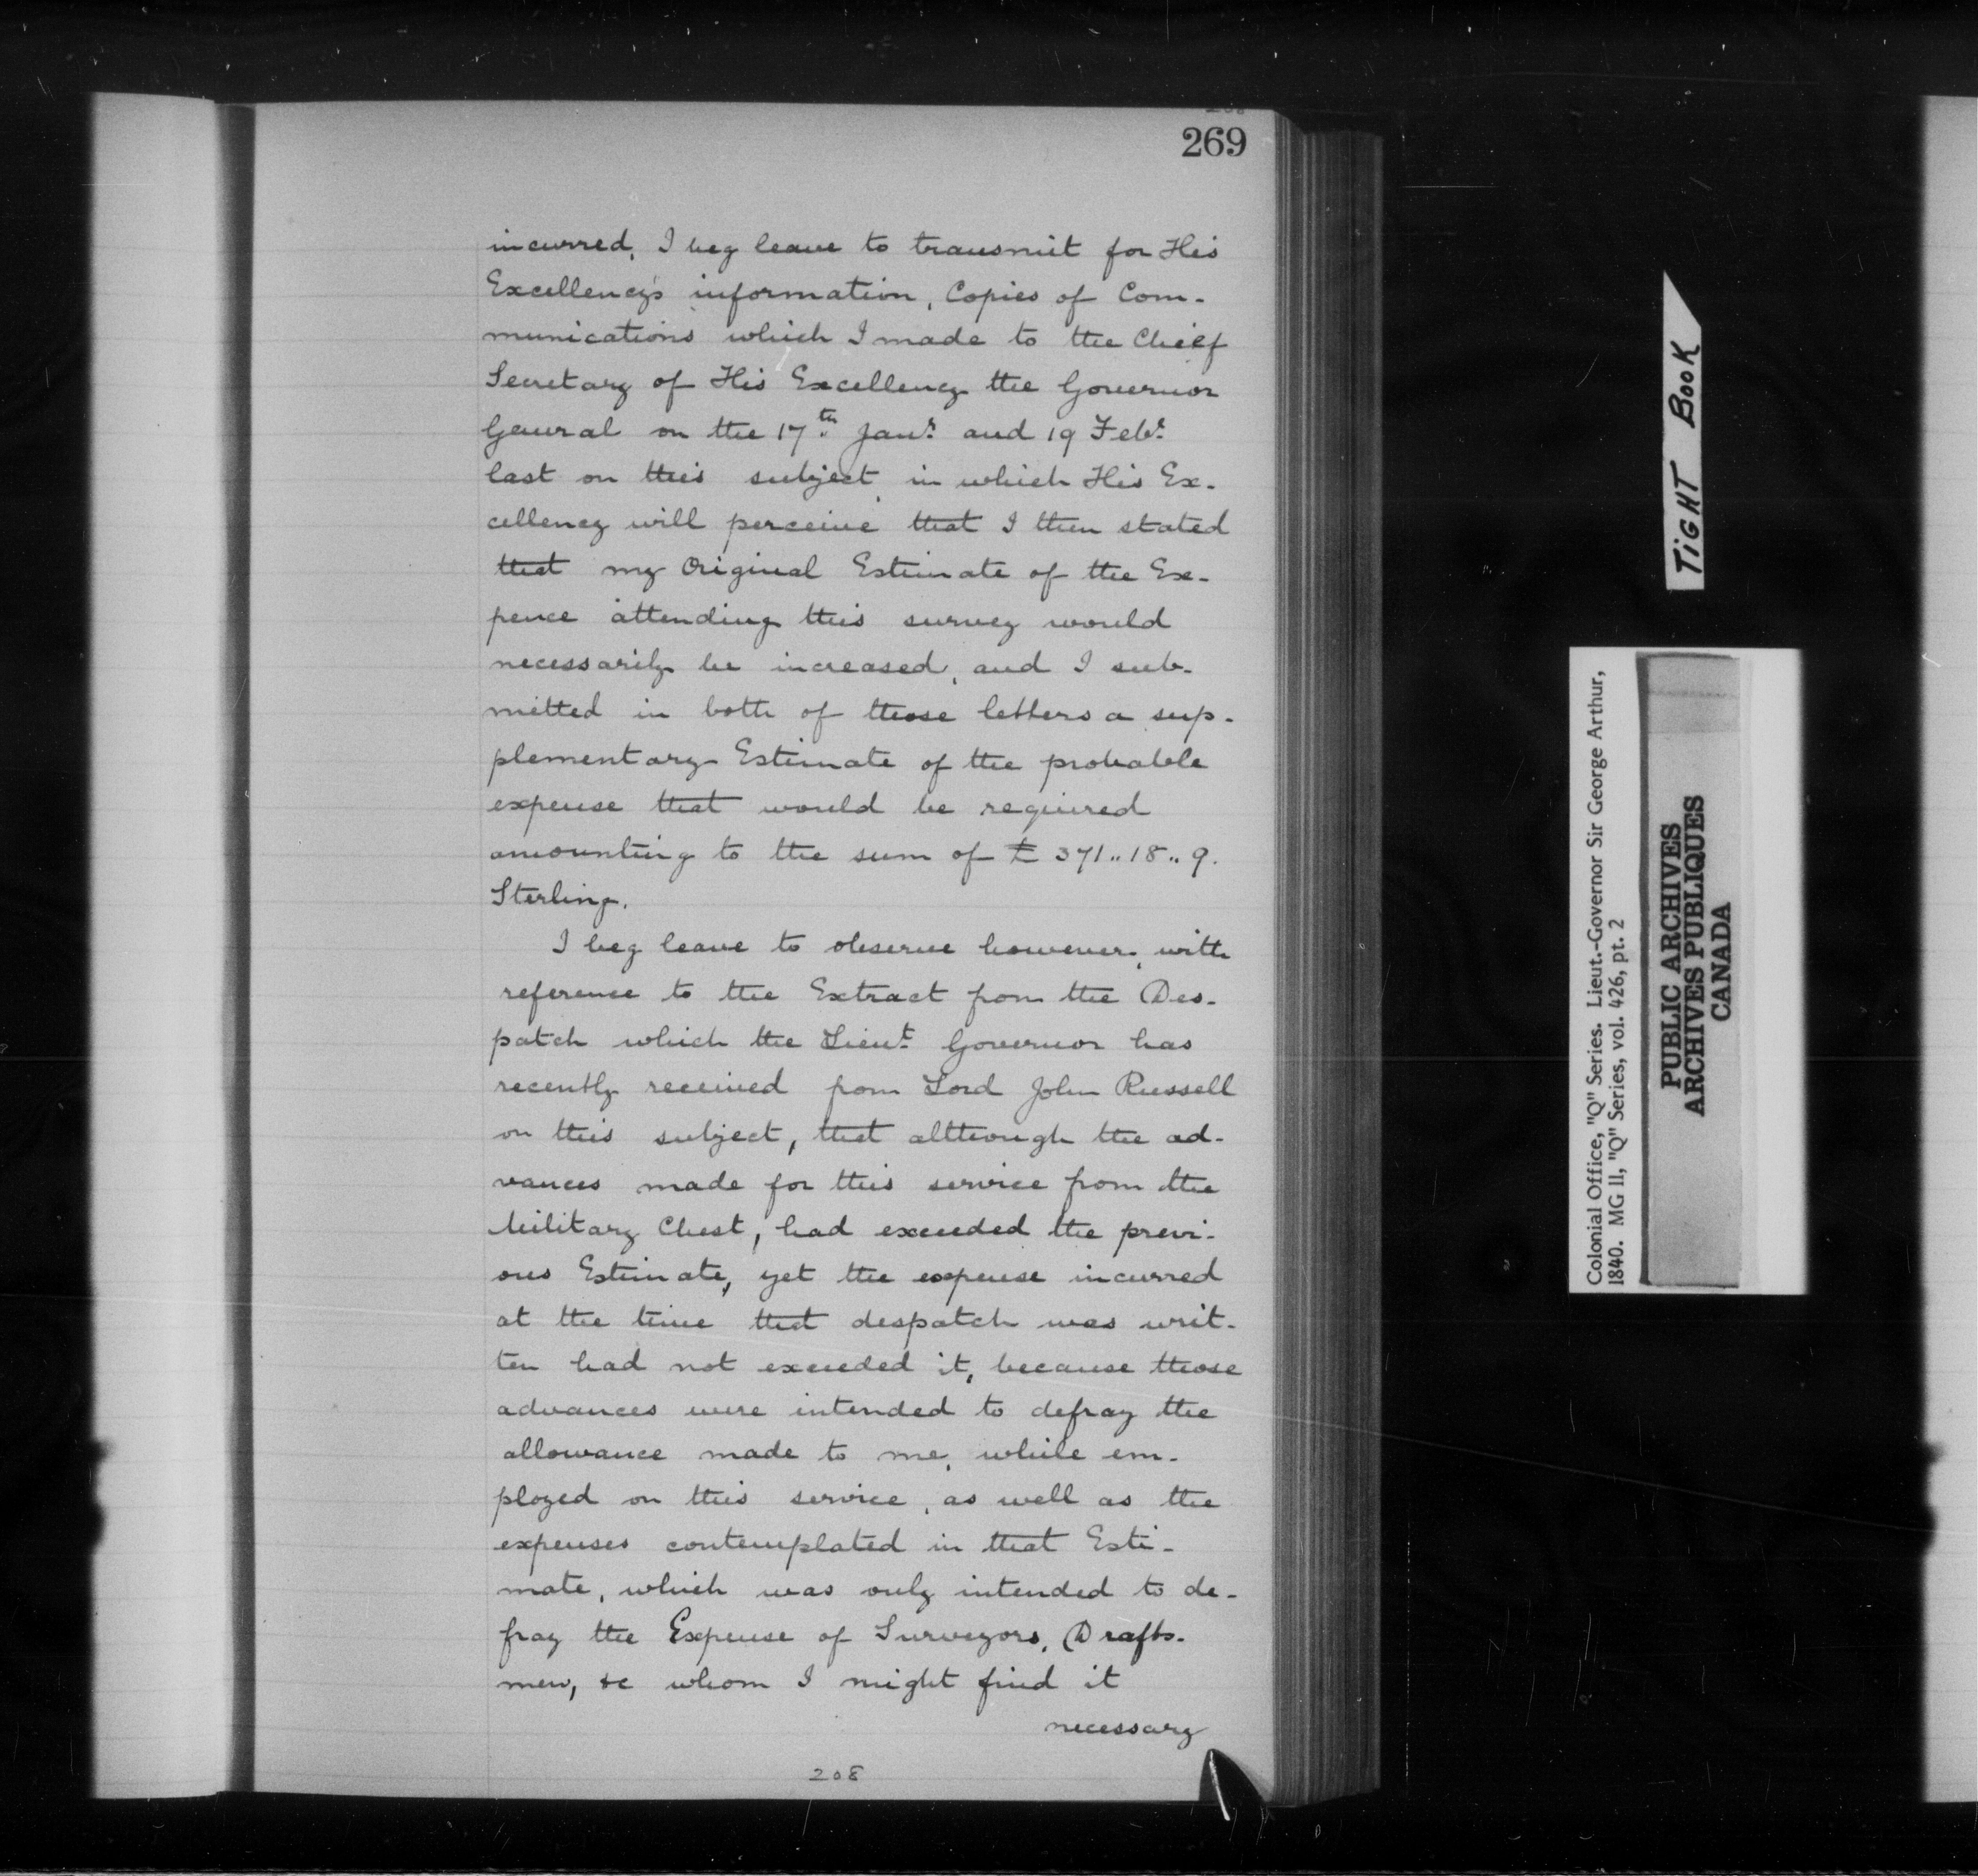 269
incurred, I beg leave to transmit for His
Excellency's information, Copies of Com-
munications which I made to the Chief
Secretary of His Excellency the Governor
General on the 17th Jany. and 19 Feby.
last on this subject, in which His Ex-
cellency will perceive that I then stated
that my Original Estimate of the Ex-
pence attending this survey would
necessarily be increased, and I sub-
mitted in both of those letters a sup-
plementary Estimate of the probable
expense that would be required
amounting to the sum of £ 371..18..9.
Sterling.
I beg leave to observe however, with
reference to the Extract from the Des-
patch which the Lieut. Governor has
recently received from Lord John Russell
on this subject, that although the ad-
vances made for this service from the
Military Chest, had exceeded the previ-
ous Estimate, yet the expense incurred
at the time that despatch was writ-
ten had not exceeded it, because those
advances were intended to defray the
allowance made to me, while em-
ployed on this service, as well as the
expenses contemplated in that Esti-
mate, which was only intended to de-
fray the Expense of Surveyors, Drafts-
men, &c whom I might find it
necessary
208
TIGHT BOOK
Colonial Office, "Q" Series. Lieut.-Governor Sir George Arthur,
1840. MG 11, "Q" Series, vol. 426, pt. 2
PUBLIC ARCHIVES
ARCHIVES PUBLIQUES
CANADA